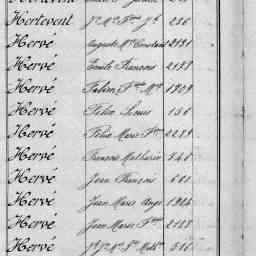 Hertevent Jn Me Fois Jh 236
Hervé Auguste Me Constant 2191
Hervé Emile François 2198
Hervé Fois Me 1909
Hervé Félix Louis 156
Hervé Félix Marie Fois 2239
Hervé François Mathurin 546
Hervé Jean François 681
Hervé Jean Marie Ange 1904
Hervé Jean Marie Fois 2188
Hervé Jh Jn Me Fois 516